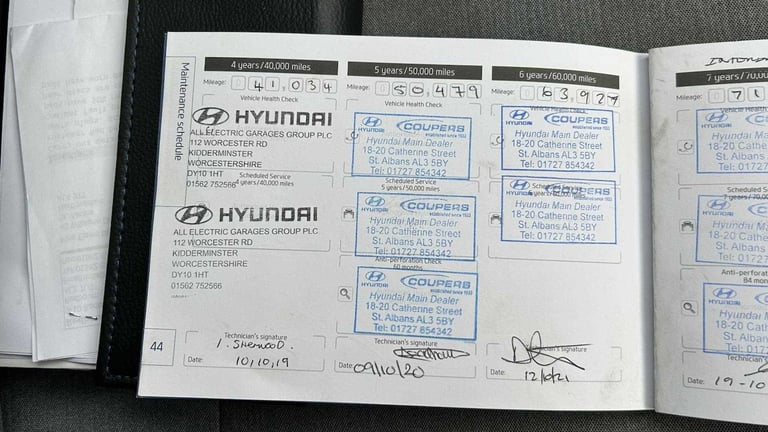 Maintenance schedule
4 years/40,000 miles
Mileage: 0 41,034
Vehicle Health Check
HYUNDAI
ALL ELECTRIC GARAGES GROUP PLC
112 WORCESTER RD
KIDDERMINSTER
WORCESTERSHIRE
DY10 1HT
01562 752566
4 years/40,000 miles
HYUNDAI
ALL ELECTRIC GARAGES GROUP PLC
112 WORCESTER RD
KIDDERMINSTER
WORCESTERSHIRE
DY10 1HT
01562 752566
Technician's signature
I. SHERWOOD.
Date: 10,10,19
44
5 years/50,000 miles
Mileage: 0 50,479
Vehicle Health Check
HYUNDAI COUPERS
established since 1932
Hyundai Main Dealer
18-20 Catherine Street
St. Albans AL3 5BY
Tel: 01727 854342
Scheduled Service
5 years/50,000 miles
HYUNDAI COUPERS
established since 1932
Hyundai Main Dealer
18-20 Catherine Street
St. Albans AL3 5BY
Tel: 01727 854342
Anti-perforation Check
60 months
HYUNDAI COUPERS
established since 1932
Hyundai Main Dealer
18-20 Catherine Street
St. Albans AL3 5BY
Tel: 01727 854342
Technician's signature
Date: 09/10/20
6 years/60,000 miles
Mileage: 0 63,927
Vehicle Health Check
HYUNDAI COUPERS
established since 1932
Hyundai Main Dealer
18-20 Catherine Street
St. Albans AL3 5BY
Tel: 01727 854342
Scheduled Service
6 years/60,000 miles
HYUNDAI COUPERS
Hyundai Main Dealer
18-20 Catherine Street
St. Albans AL3 5BY
Tel: 01727 854342
Technician's signature
Date:
7 years/70,0
Mileage: 0 71
Vehicle Health
HYUNDAI
Hyundai M
18-20 Cath
St. Alba
Tel: 01
Scheduled S
7 years/70,0
HYUNDAI
Hyundai M
18-20 Cath
St. Alba
Tel: 0
Anti-perfor
84 mon
HYUNDAI
Hyundai
18-20 Ca
St. Al
Tel:
Technician
Date: 19-10